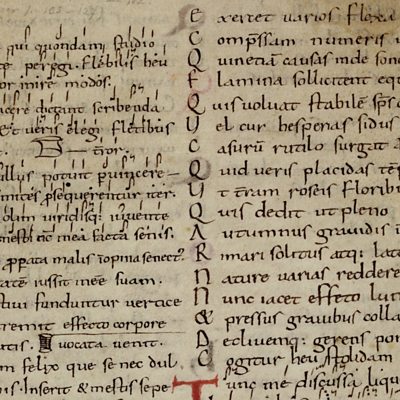 qui quondam studio
te peregi. flebilis heu
or mire modos.
acere dictant scribenda
Et veris elegi fletibus
ror.
ullus potuit puincere
mites psequerentur iter.
olim viridisq: iuuente
mesti nc mea facta senis.
pperata malis inopina senect
tatem iussit inesse suam.
tiui funduntur vertice
tremit effecto corpore
rtis. vocata venit.
m felix que se nec dul
nis. Inserit & mestis sepe
Exercet varios flexa
Compssam numeris
Quinetiam causas unde sono
Flamina sollicitent equ
Quis voluat stabilē sps o
Vel cur hesperias sidus
Casurū rutilo surgat a
Quid veris placidas tē
Vt terram roseis floribu
Quis dedit ut pleno
Autumnus gravidis u
Rimari solitus atq: late
Nature varias reddere
Nunc iacet effeto lum
& pressus gravibus colla
Decliuemq: gerens pon
Cogitur heu stolidam
Tunc me discussa liqu